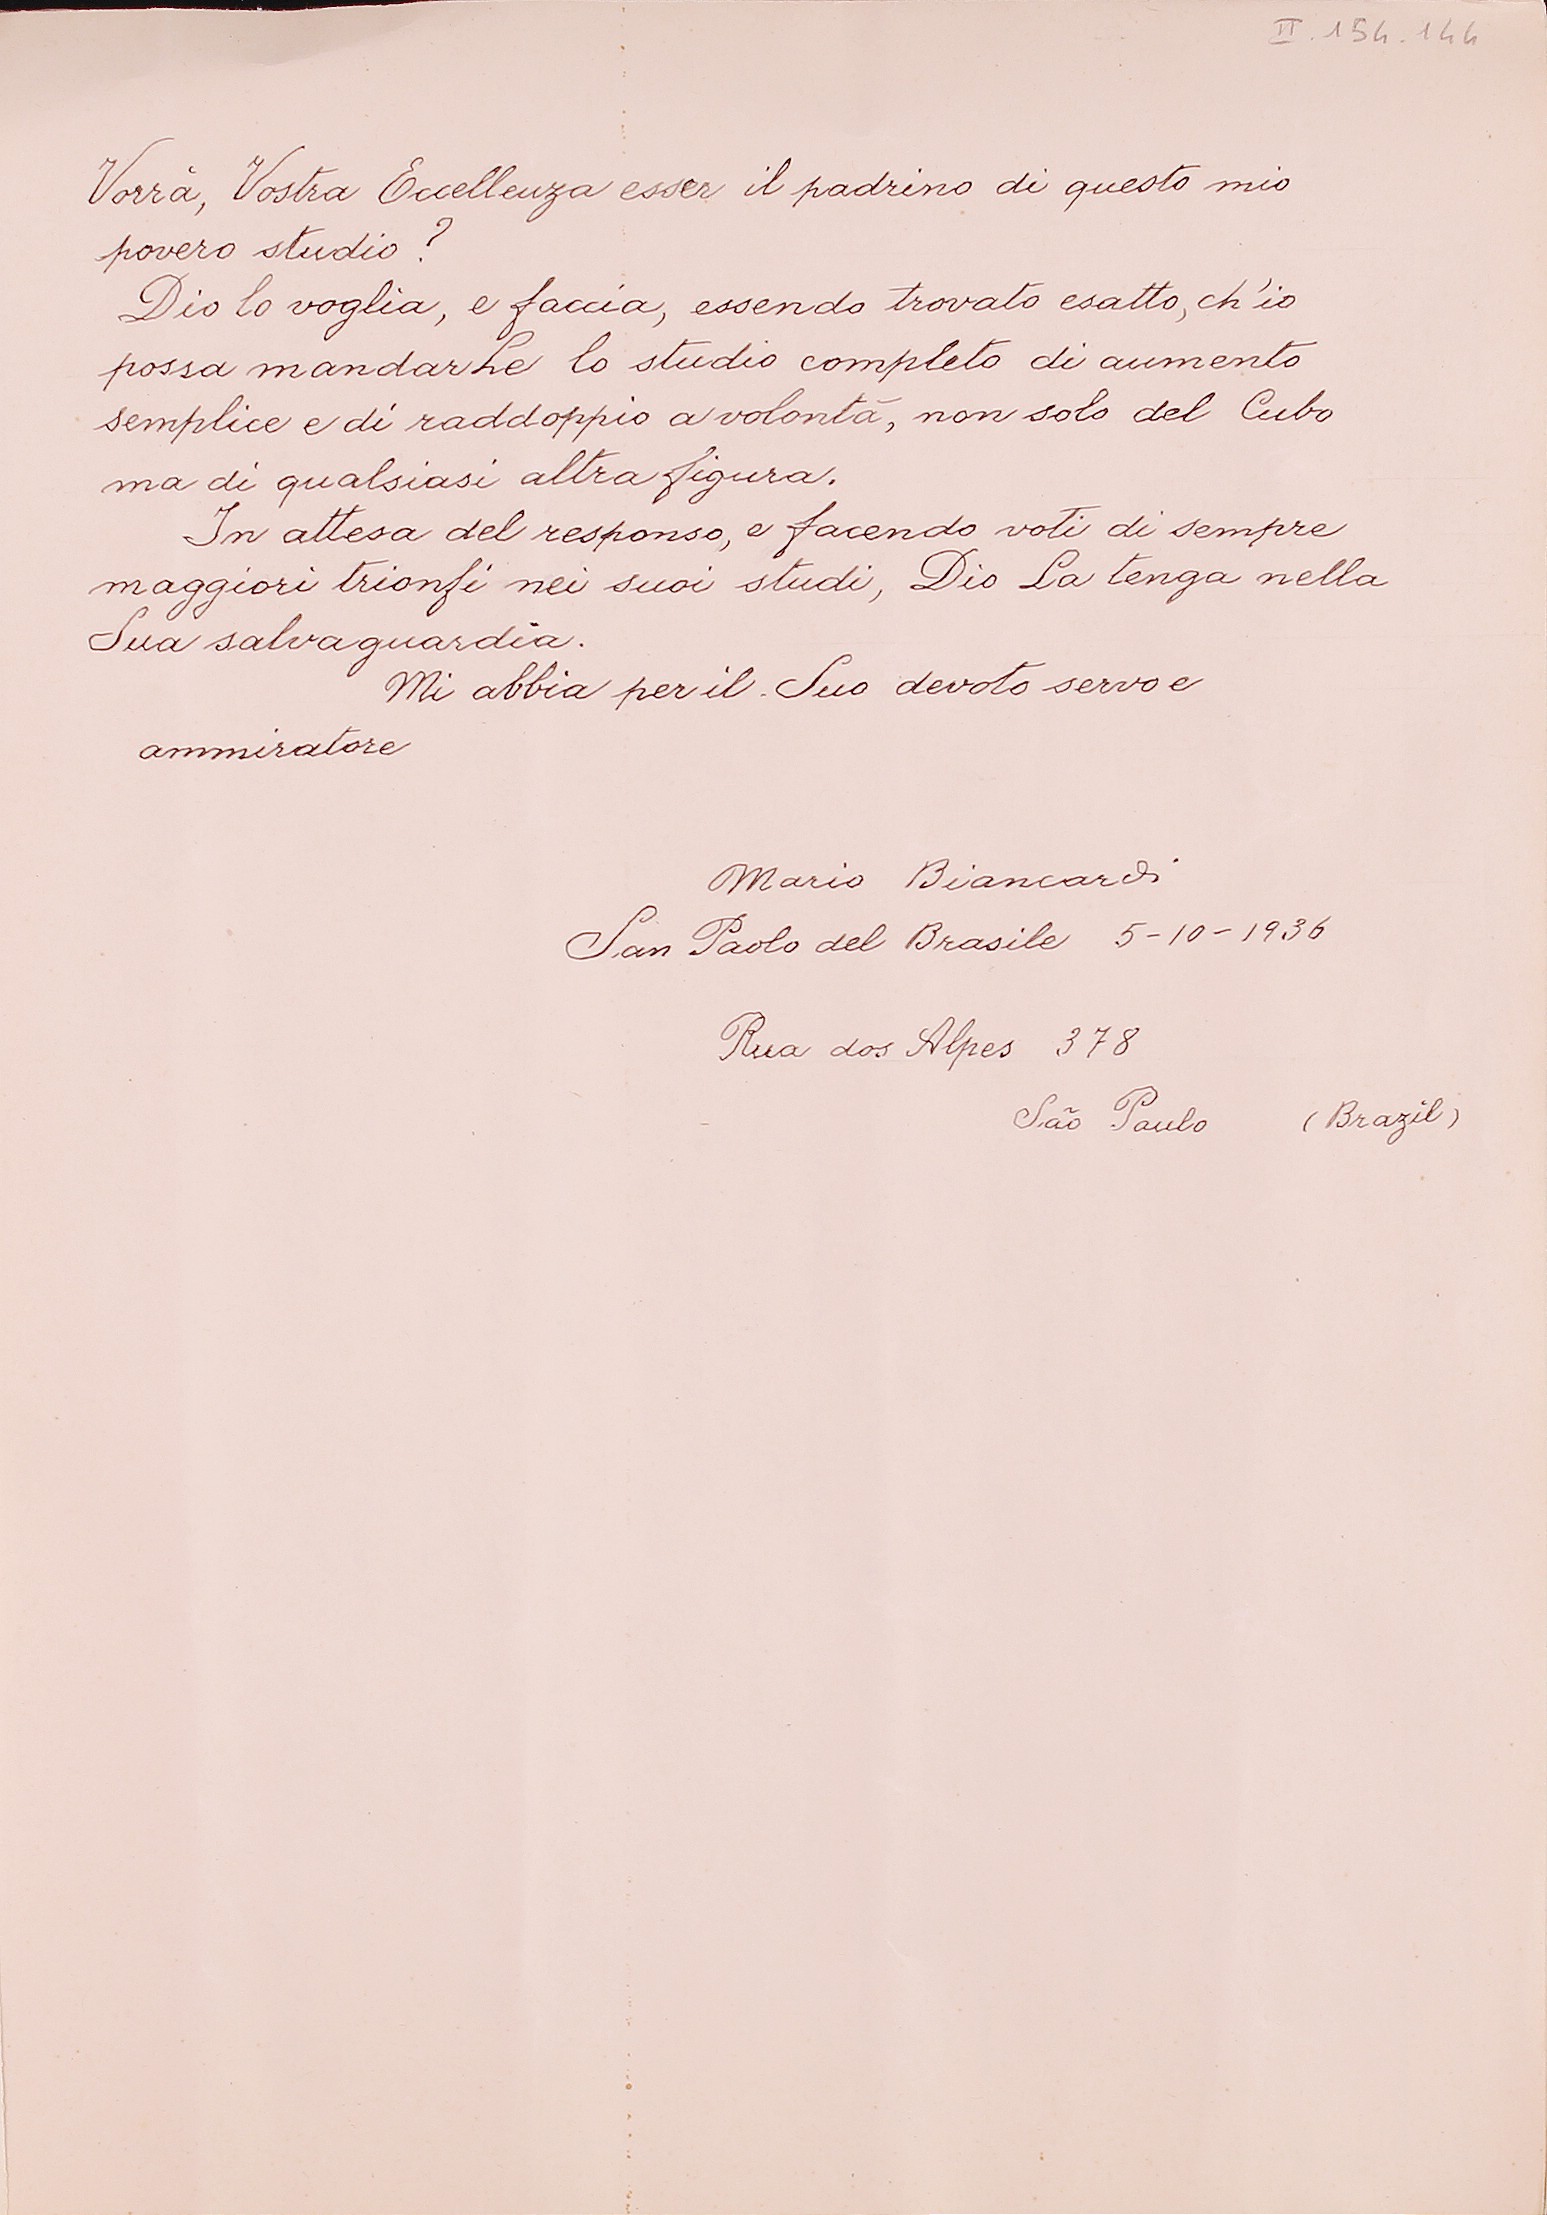 II.154.144
Vorrà, Vostra Eccellenza esser il padrino di questo mio
povero studio?
Dio lo voglia, e faccia, essendo trovato esatto, ch'io
possa mandarLe lo studio completo di aumento
semplice e di raddoppio a volontà, non solo del Cubo
ma di qualsiasi altra figura.
In attesa del responso, e facendo voti di sempre
maggiori trionfi nei suoi studi, Dio La tenga nella
Sua salvaguardia.
Mi abbia per il Suo devoto servo e
ammiratore
Mario Biancardi
San Paolo del Brasile 5-10-1936
Rua dos Alpes 378
São Paulo (Brazil)